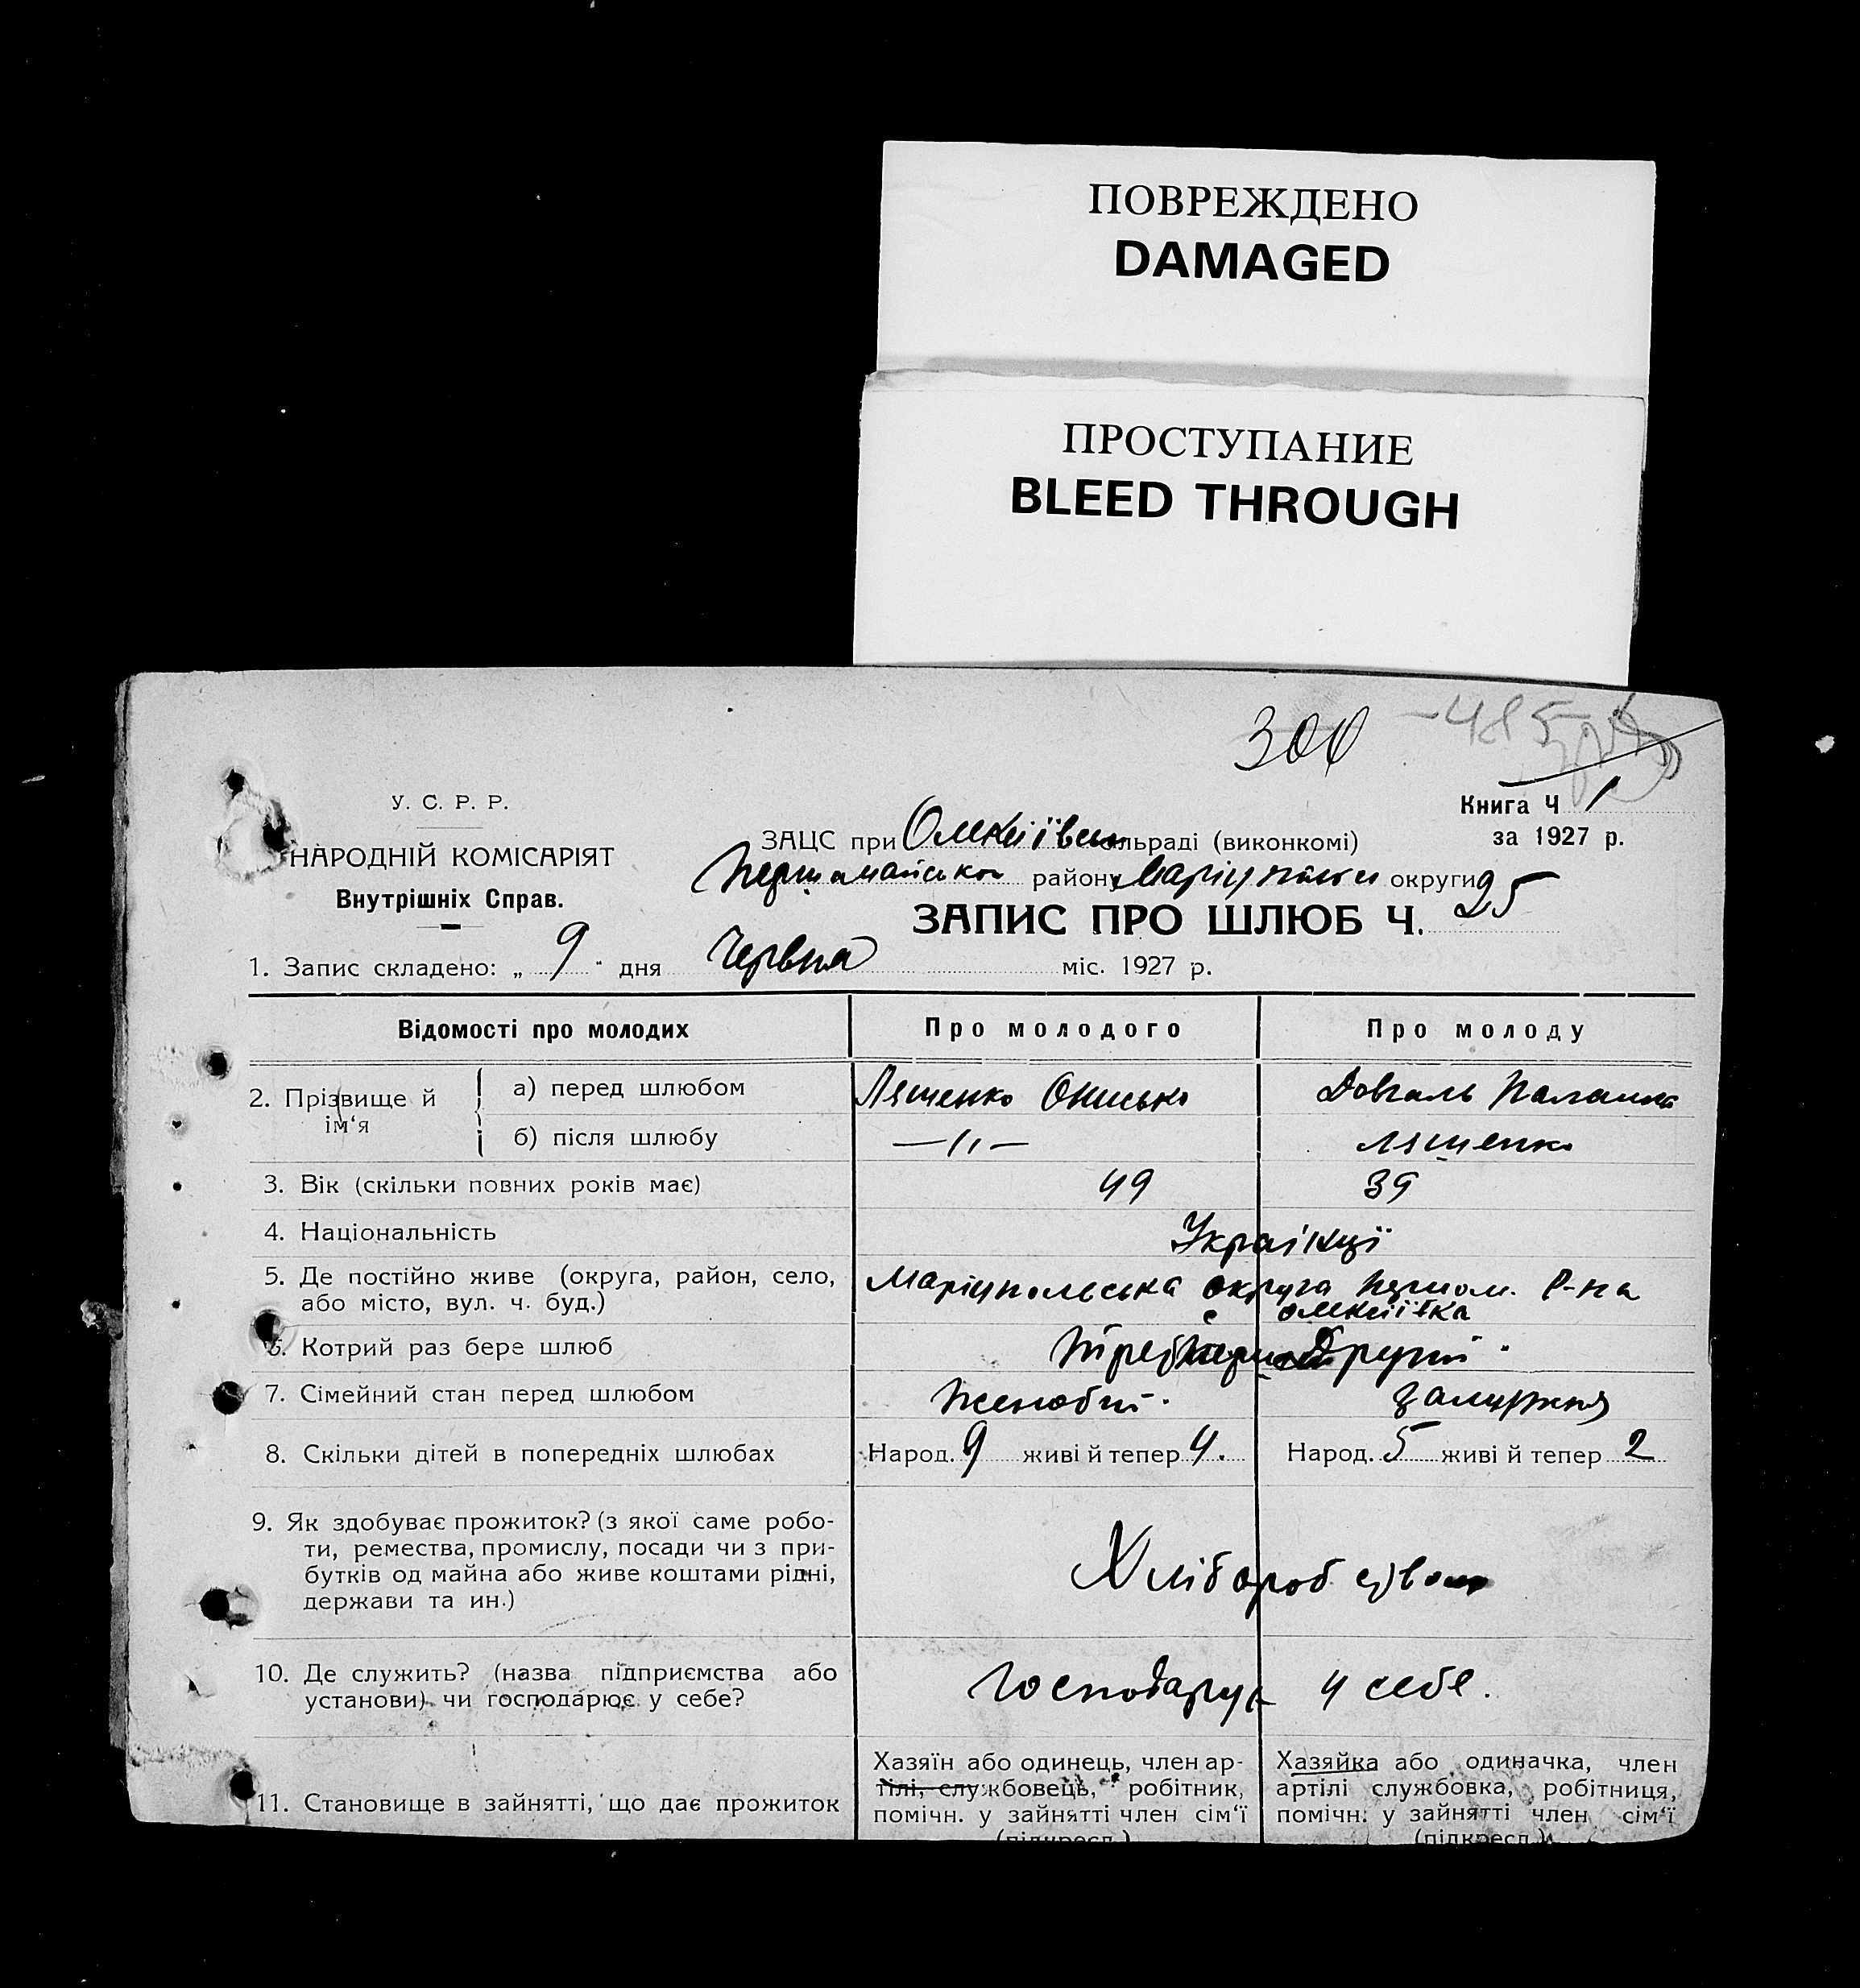 ПОВРЕЖДЕНО
DAMAGED
ПРОСТУПАНИЕ
BLEED THROUGH
300
У. С. Р. Р.
НАРОДНІЙ КОМІСАРІЯТ
Внутрішніх Справ.
Книга Ч 1
за 1927 р.
ЗАЦС при Олексіївськ льраді (виконкомі)
Першамайсько району Маріупільськ округи
ЗАПИС ПРО ШЛЮБ Ч. 25
1. Запис складено: „ 9 " дня Червня міс. 1927 р.
Відомості про молодих Про молодого Про молоду
2. Прізвище й ім‘я
а) перед шлюбом Лященко Онисько Довгаль Палашка
б) після шлюбу —11— Лященко
3. Вік (скільки повних років має) 49 39
4. Національність Українці
5. Де постійно живе (округа, район, село, Маріупольська округа Першом. Р-на
або місто, вул. ч. буд.) с Олексіївка
6. Котрий раз бере шлюб Другий
7. Сімейний стан перед шлюбом замужня
8. Скільки дітей в попередніх шлюбах Народ. 9 живі й тепер 4. Народ. 5 живі й тепер 2
9. Як здобуває прожиток? (з якої саме робо-
ти, ремества, промислу, посади чи з при-
бутків од майна або живе коштами рідні,
держави та ин.)
Хліборобством
10. Де служить? (назва підприємства або
установи) чи господарює у себе?
Господарує у себе.
11. Становище в зайнятті, що дає прожиток
Хазяїн або одинець, член ар-
тілі, службовець, робітник,
помічн. у зайнятті член сім‘ї
(підкресл.)
Хазяйка або одиначка, член
артілі службовка, робітниця,
помічн. у зайнятті член сім‘ї
(підкресл.)